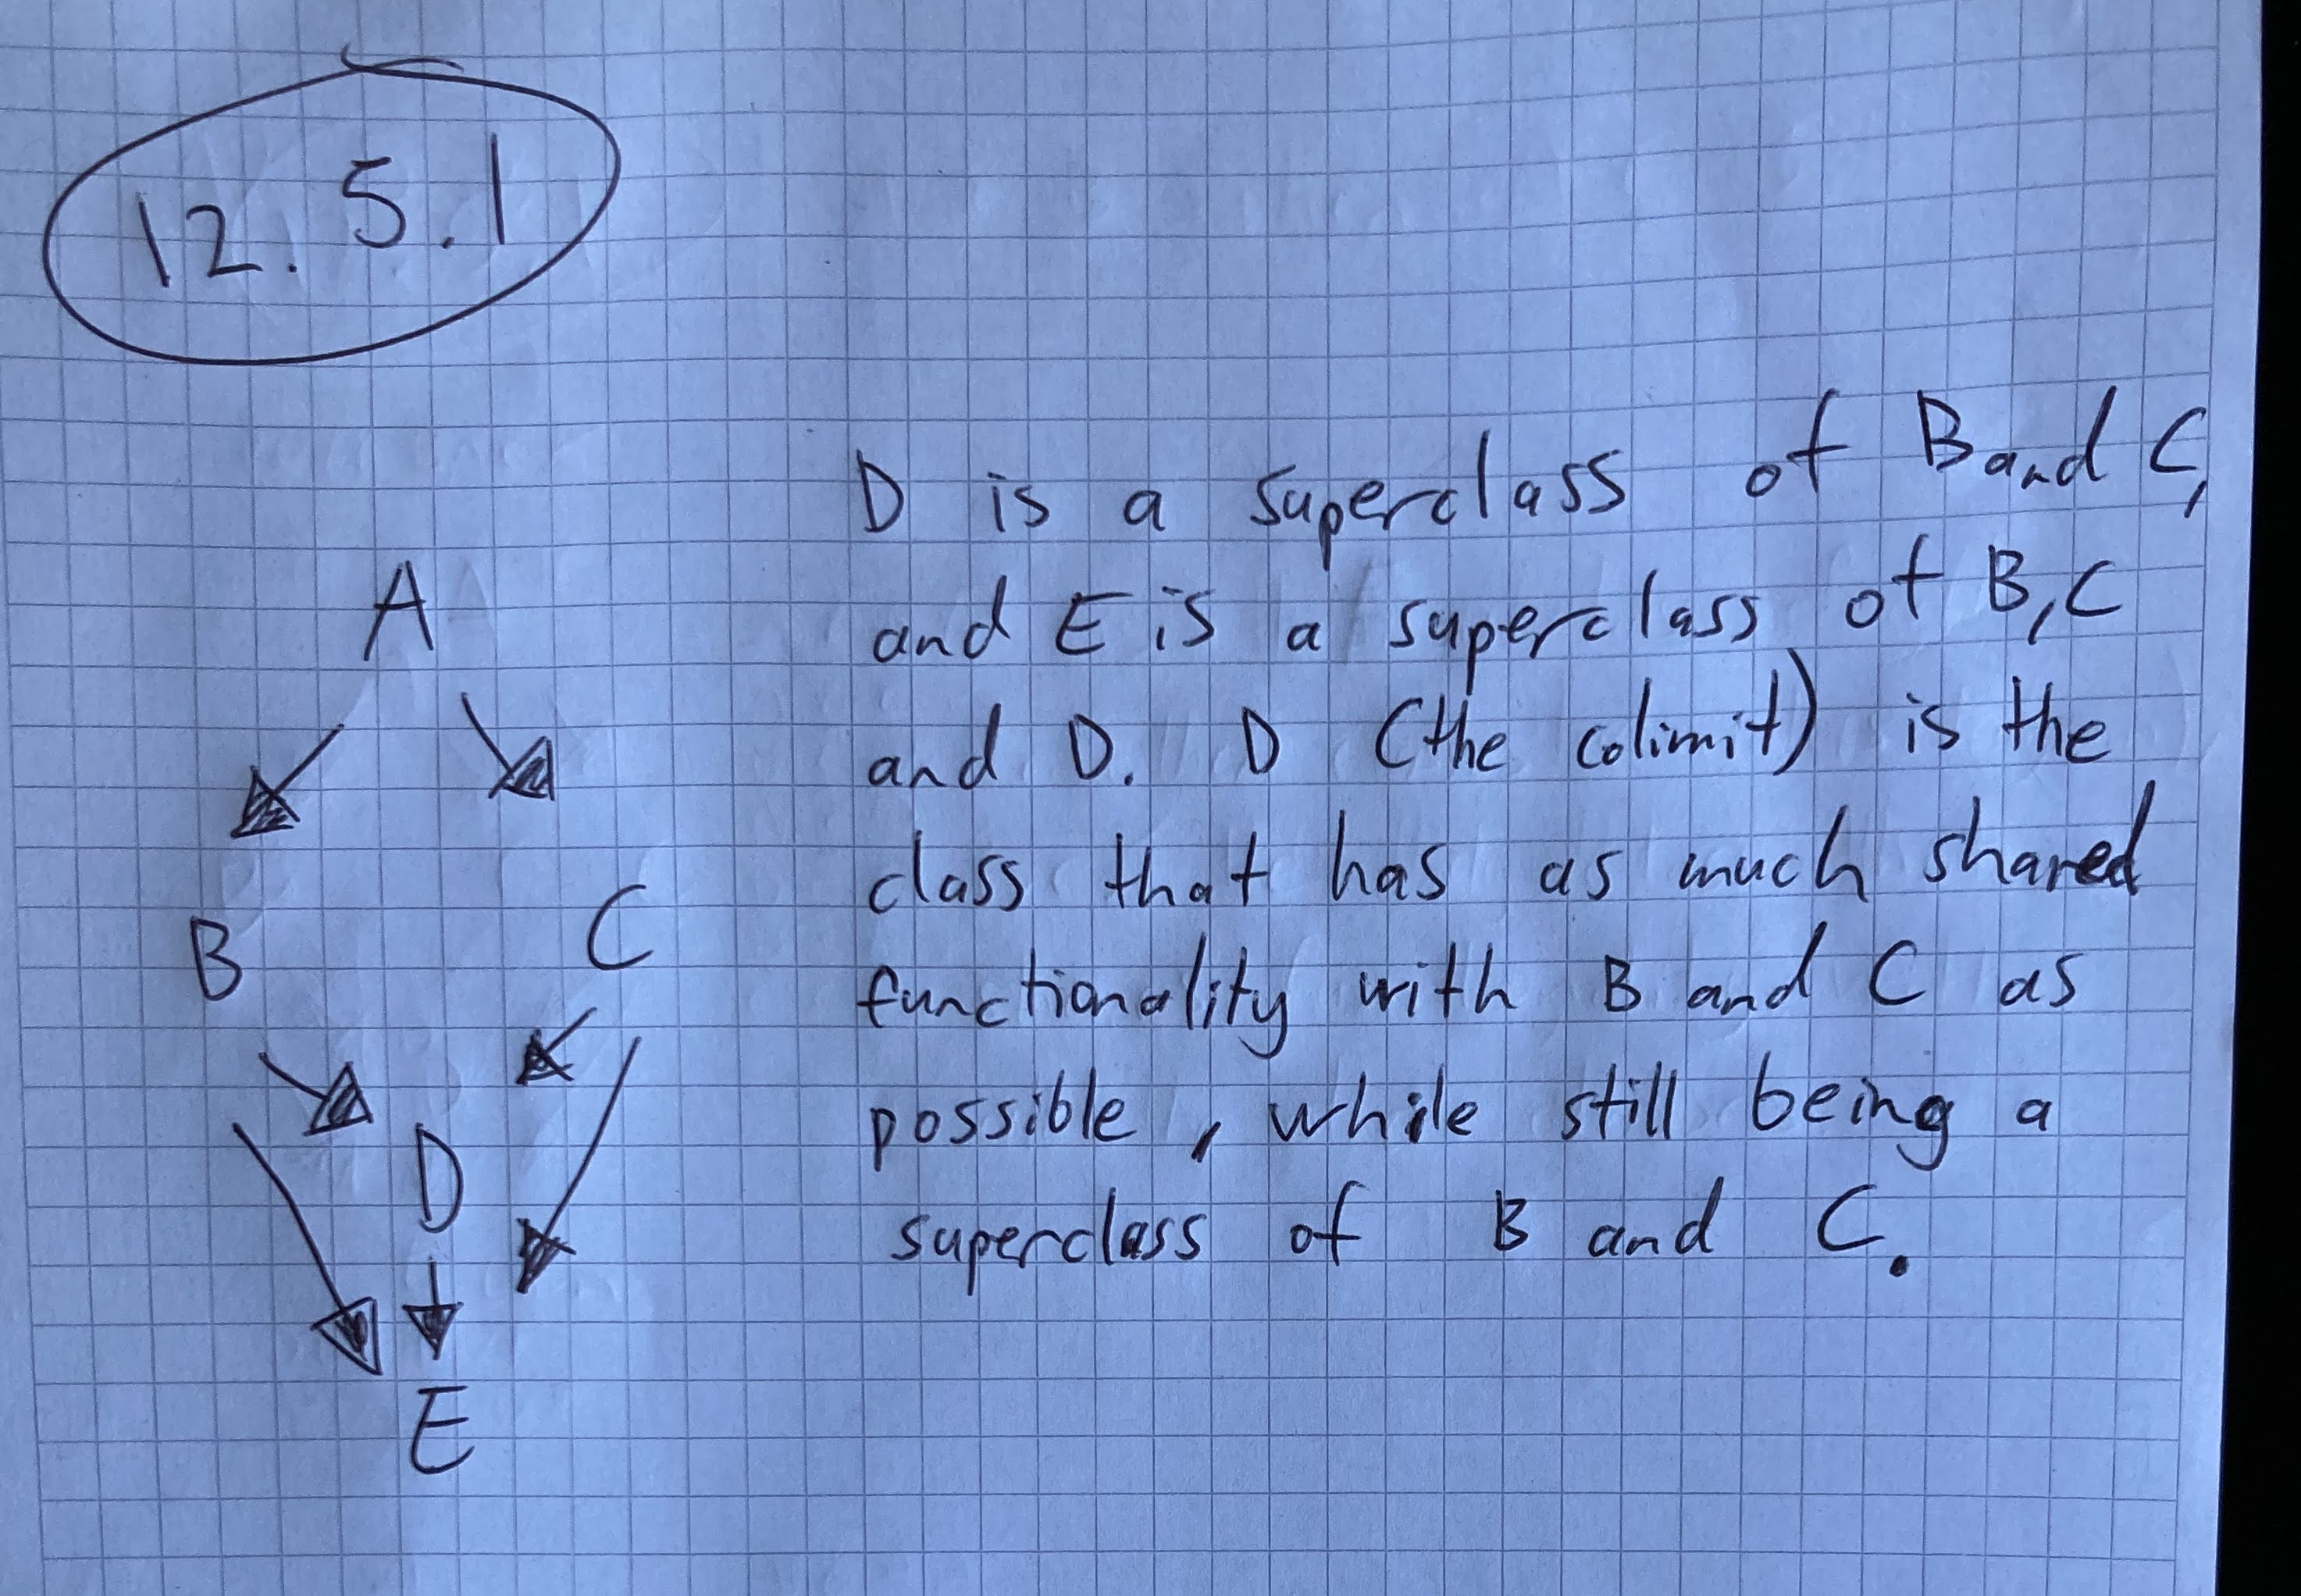 12.5.1
A
B
C
D
E
D is a superclass of B and C,
and E is a superclass of B, C
and D. D (the colimit) is the
class that has as much shared
functionality with B and C as
possible, while still being a
superclass of B and C.